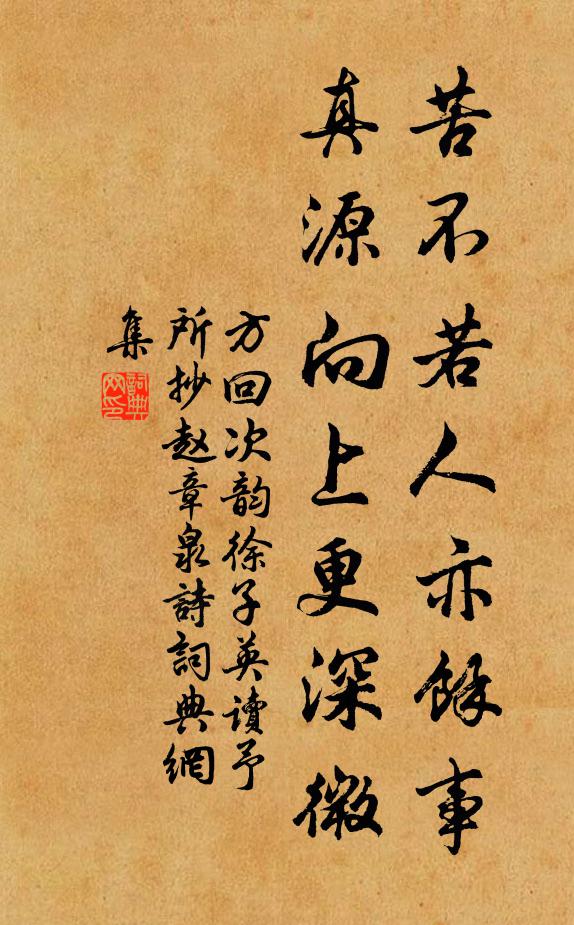 苦不若人亦餘事
真源向上更深微
方回次韵徐子英讀予
所抄赵章泉詩詞典網
集
詞典
网印